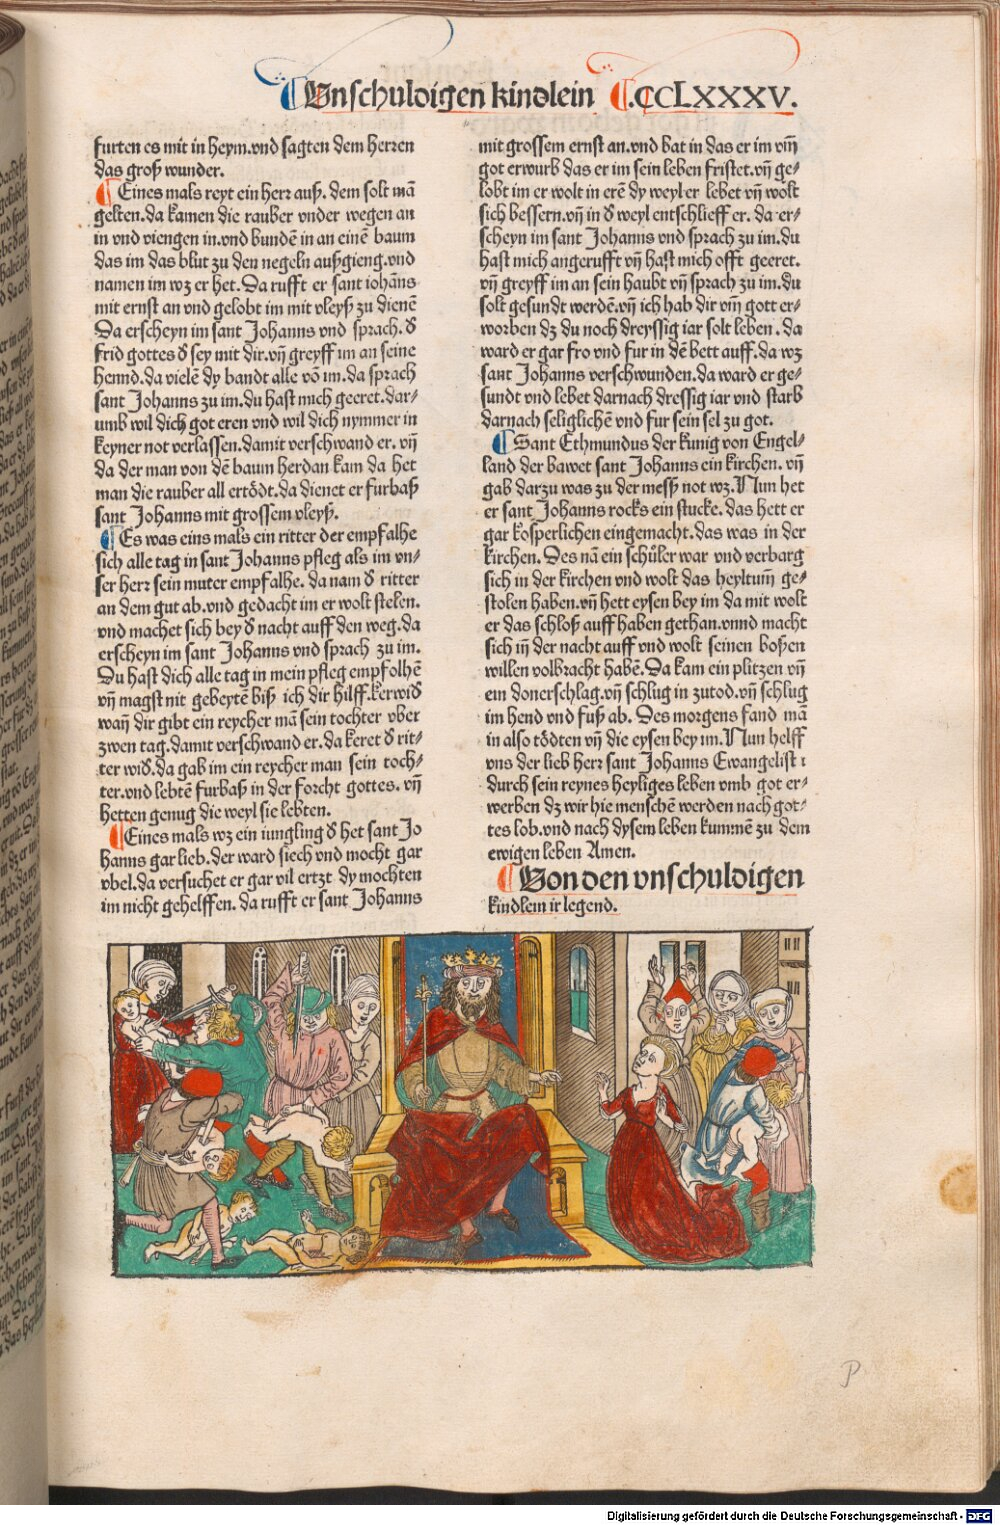 Unschuldigen kindlein .CCLXXXV.
furten es mit in heym.vnd sagten dem herren
das groß wunder.
Eines mals reyt ein herr auß. dem solt mā
gelten.da kamen die rauber vnder wegen an
in vnd viengen in.vnd bundē in an einē baum
das im das blut zu den negeln außgieng.vnd
namen im wz er het. Da rufft er sant iohāns
mit ernst an vnd gelobt im mit vleyß zu dienē
Da erscheyn im sant Johanns vnd sprach. ď
frid gottes ď sey mit dir.vn̄ greyff im an seine
hennd.da vielē dy bandt alle vō im.da sprach
sant Johanns zu im.du hast mich geeret.dar⸗
umb wil dich got eren vnd wil dich nymmer in
keyner not verlassen.damit verschwand er. vn̄
da der man von dē baum herdan kam da het
man die rauber all ertödt.da dienet er furbaß
sant Johanns mit grossem vleyß.
Es was eins mals ein ritter der empfalhe
sich alle tag in sant Johanns pfleg als im vn⸗
ser herr sein muter empfalhe. da nam ď ritter
an dem gut ab.vnd gedacht im er wolt stelen.
vnd machet sich bey ď nacht auff den weg.da
erscheyn im sant Johanns vnd sprach zu im.
Du hast dich alle tag in mein pfleg empfolhē
vn̄ magst nit gebeytē biß ich dir hilff.kerwiď
wan̄ dir gibt ein reycher mā sein tochter vber
zwen tag.damit verschwand er.da keret ď rit⸗
ter wiď.da gab im ein reycher man sein toch⸗
ter.vnd lebtē furbaß in der forcht gottes. vn̄
hetten genug die weyl sie lebten.
Eines mals wz ein iungling ď het sant Jo
hanns gar lieb.der ward siech vnd mocht gar
vbel.da versuchet er gar vil ertzt dy mochten
im nicht gehelffen. da rufft er sant Johanns
mit grossem ernst an.vnd bat in das er im vm̄
got erwurb das er im sein leben fristet.vn̄ ge⸗
lobt im er wolt in erē dy weyl er lebet vn̄ wolt
sich bessern.vn̄ in ď weyl entschlieff er. da er⸗
scheyn im sant Johanns vnd sprach zu im.du
hast mich angerufft vn̄ hast mich offt geeret.
vn̄ greyff im an sein haubt vn̄ sprach zu im.du
solt gesundt werdē.vn̄ ich hab dir vm̄ gott er⸗
worben dz du noch dreyssig iar solt leben. da
ward er gar fro vnd fur in dē bett auff.da wz
sant Johanns verschwunden.da ward er ge⸗
sundt vnd lebet darnach dressig iar vnd starb
darnach seliglichē vnd fur sein sel zu got.
Sant Ethmundus der kunig von Engel⸗
land der bawet sant Johanns ein kirchen. vn̄
gab darzu was zu der meß not wz.Nun het
er sant Johanns rocks ein stucke. das hett er
gar kosperlichen eingemacht.das was in der
kirchen. Des nā ein schůler war vnd verbarg
sich in der kirchen vnd wolt das heyltum̄ ge⸗
stolen haben.vn̄ hett eysen bey im da mit wolt
er das schloß auff haben gethan.vnnd macht
sich in̄ der nacht auff vnd wolt seinen boßen
willen volbracht habē.Da kam ein plitzen vn̄
ein donerschlag.vn̄ schlug in zutod.vn̄ schlug
im hend vnd fuß ab. Des morgens fand mā
in also tödten vn̄ die eysen bey im.Nun helff
vns der lieb herr sant Johanns Ewangelist
durch sein reynes heyliges leben vmb got er⸗
werben dz wir hie menschē werden nach got⸗
tes lob.vnd nach dysem leben kummē zu dem
ewigen leben Amen.
Von den vnschuldigen
kindlein ir legend.
P
Digitalisierung gefördert durch die Deutsche Forschungsgemeinschaft - DFG